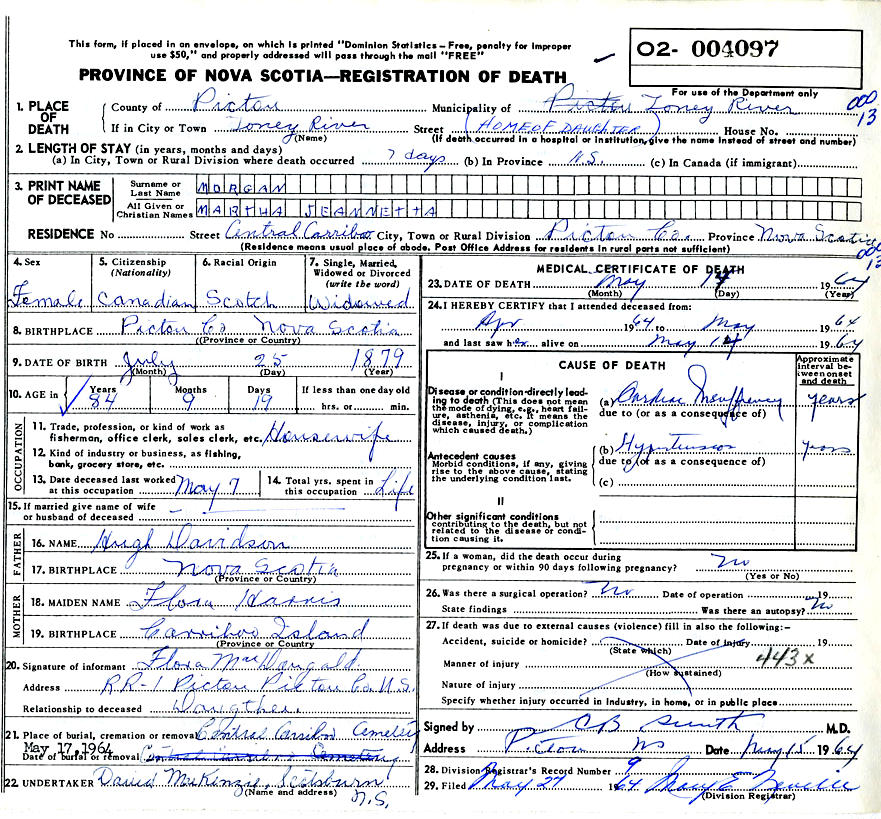 This form, if placed in an envelope, on which is printed "Dominion Statistics – Free, penalty for improper
use $50," and properly addressed will pass through the mail "FREE"
O2- 004097
PROVINCE OF NOVA SCOTIA—REGISTRATION OF DEATH
For use of the Department only
1. PLACE OF DEATH
County of Pictou Municipality of Pictou Toney River
000 13
If in City or Town Toney River Street (HOME OF DAUGHTER) House No.
(Name) (If death occurred in a hospital or institution, give the name instead of street and number)
2. LENGTH OF STAY (in years, months and days)
(a) In City, Town or Rural Division where death occurred 7 days (b) In Province N.S. (c) In Canada (if immigrant)
3. PRINT NAME OF DECEASED
Surname or Last Name MORGAN
All Given or Christian Names MARTHA JEANNETTA
RESIDENCE No Street Central Carriboo City, Town or Rural Division Pictou Co. Province Nova Scotia
(Residence means usual place of abode. Post Office Address for residents in rural parts not sufficient)
000 13
4. Sex Female
5. Citizenship (Nationality) Canadian
6. Racial Origin Scotch
7. Single, Married, Widowed or Divorced (write the word) Widowed
8. BIRTHPLACE Pictou Co Nova Scotia
((Province or Country)
9. DATE OF BIRTH July 25 1879
(Month) (Day) (Year)
10. AGE in Years 84 Months 9 Days 19 If less than one day old hrs. or min.
OCCUPATION
11. Trade, profession, or kind of work as fisherman, office clerk, sales clerk, etc. Housewife
12. Kind of industry or business, as fishing, bank, grocery store, etc.
13. Date deceased last worked at this occupation May 7
14. Total yrs. spent in this occupation Life
15. If married give name of wife or husband of deceased
FATHER
16. NAME Hugh Davidson
17. BIRTHPLACE Nova Scotia
(Province or Country)
MOTHER
18. MAIDEN NAME Flora Harris
19. BIRTHPLACE Carriboo Island
(Province or Country)
20. Signature of informant Flora MacDougald
Address RR-1 Pictou Pictou Co N.S.
Relationship to deceased Daugther
21. Place of burial, cremation or removal Central Carriboo Cemetery
May 17, 1964
Date of burial or removal Central Cemetery
22. UNDERTAKER David McKenzie, Scotsburn N.S.
(Name and address)
MEDICAL CERTIFICATE OF DEATH
23. DATE OF DEATH May 14 1964
(Month) (Day) (Year)
24. I HEREBY CERTIFY that I attended deceased from:
Apr 1964 to May 1964
and last saw her alive on May 14 1964
CAUSE OF DEATH
Approximate interval between onset and death
I
Disease or condition directly leading to death (This does not mean the mode of dying, e.g., heart failure, asthenia, etc. It means the disease, injury, or complication which caused death.)
(a) Cardiac years
due to (or as a consequence of)
Antecedent causes
Morbid conditions, if any, giving rise to the above cause, stating the underlying condition last.
(b) Hypertension years
due to (or as a consequence of)
(c)
II
Other significant conditions
contributing to the death, but not related to the disease or condition causing it.
25. If a woman, did the death occur during pregnancy or within 90 days following pregnancy? No
(Yes or No)
26. Was there a surgical operation? No Date of operation 19
State findings Was there an autopsy? No
27. If death was due to external causes (violence) fill in also the following:–
Accident, suicide or homicide? Date of injury 19
(State which)
443x
Manner of injury
(How sustained)
Nature of injury
Specify whether injury occurred in Industry, in home, or in public place
Signed by CB Smith M.D.
Address Pictou NS Date May 15 1964
28. Division Registrar's Record Number 9
29. Filed May 27 1964 Mary E
(Division Registrar)